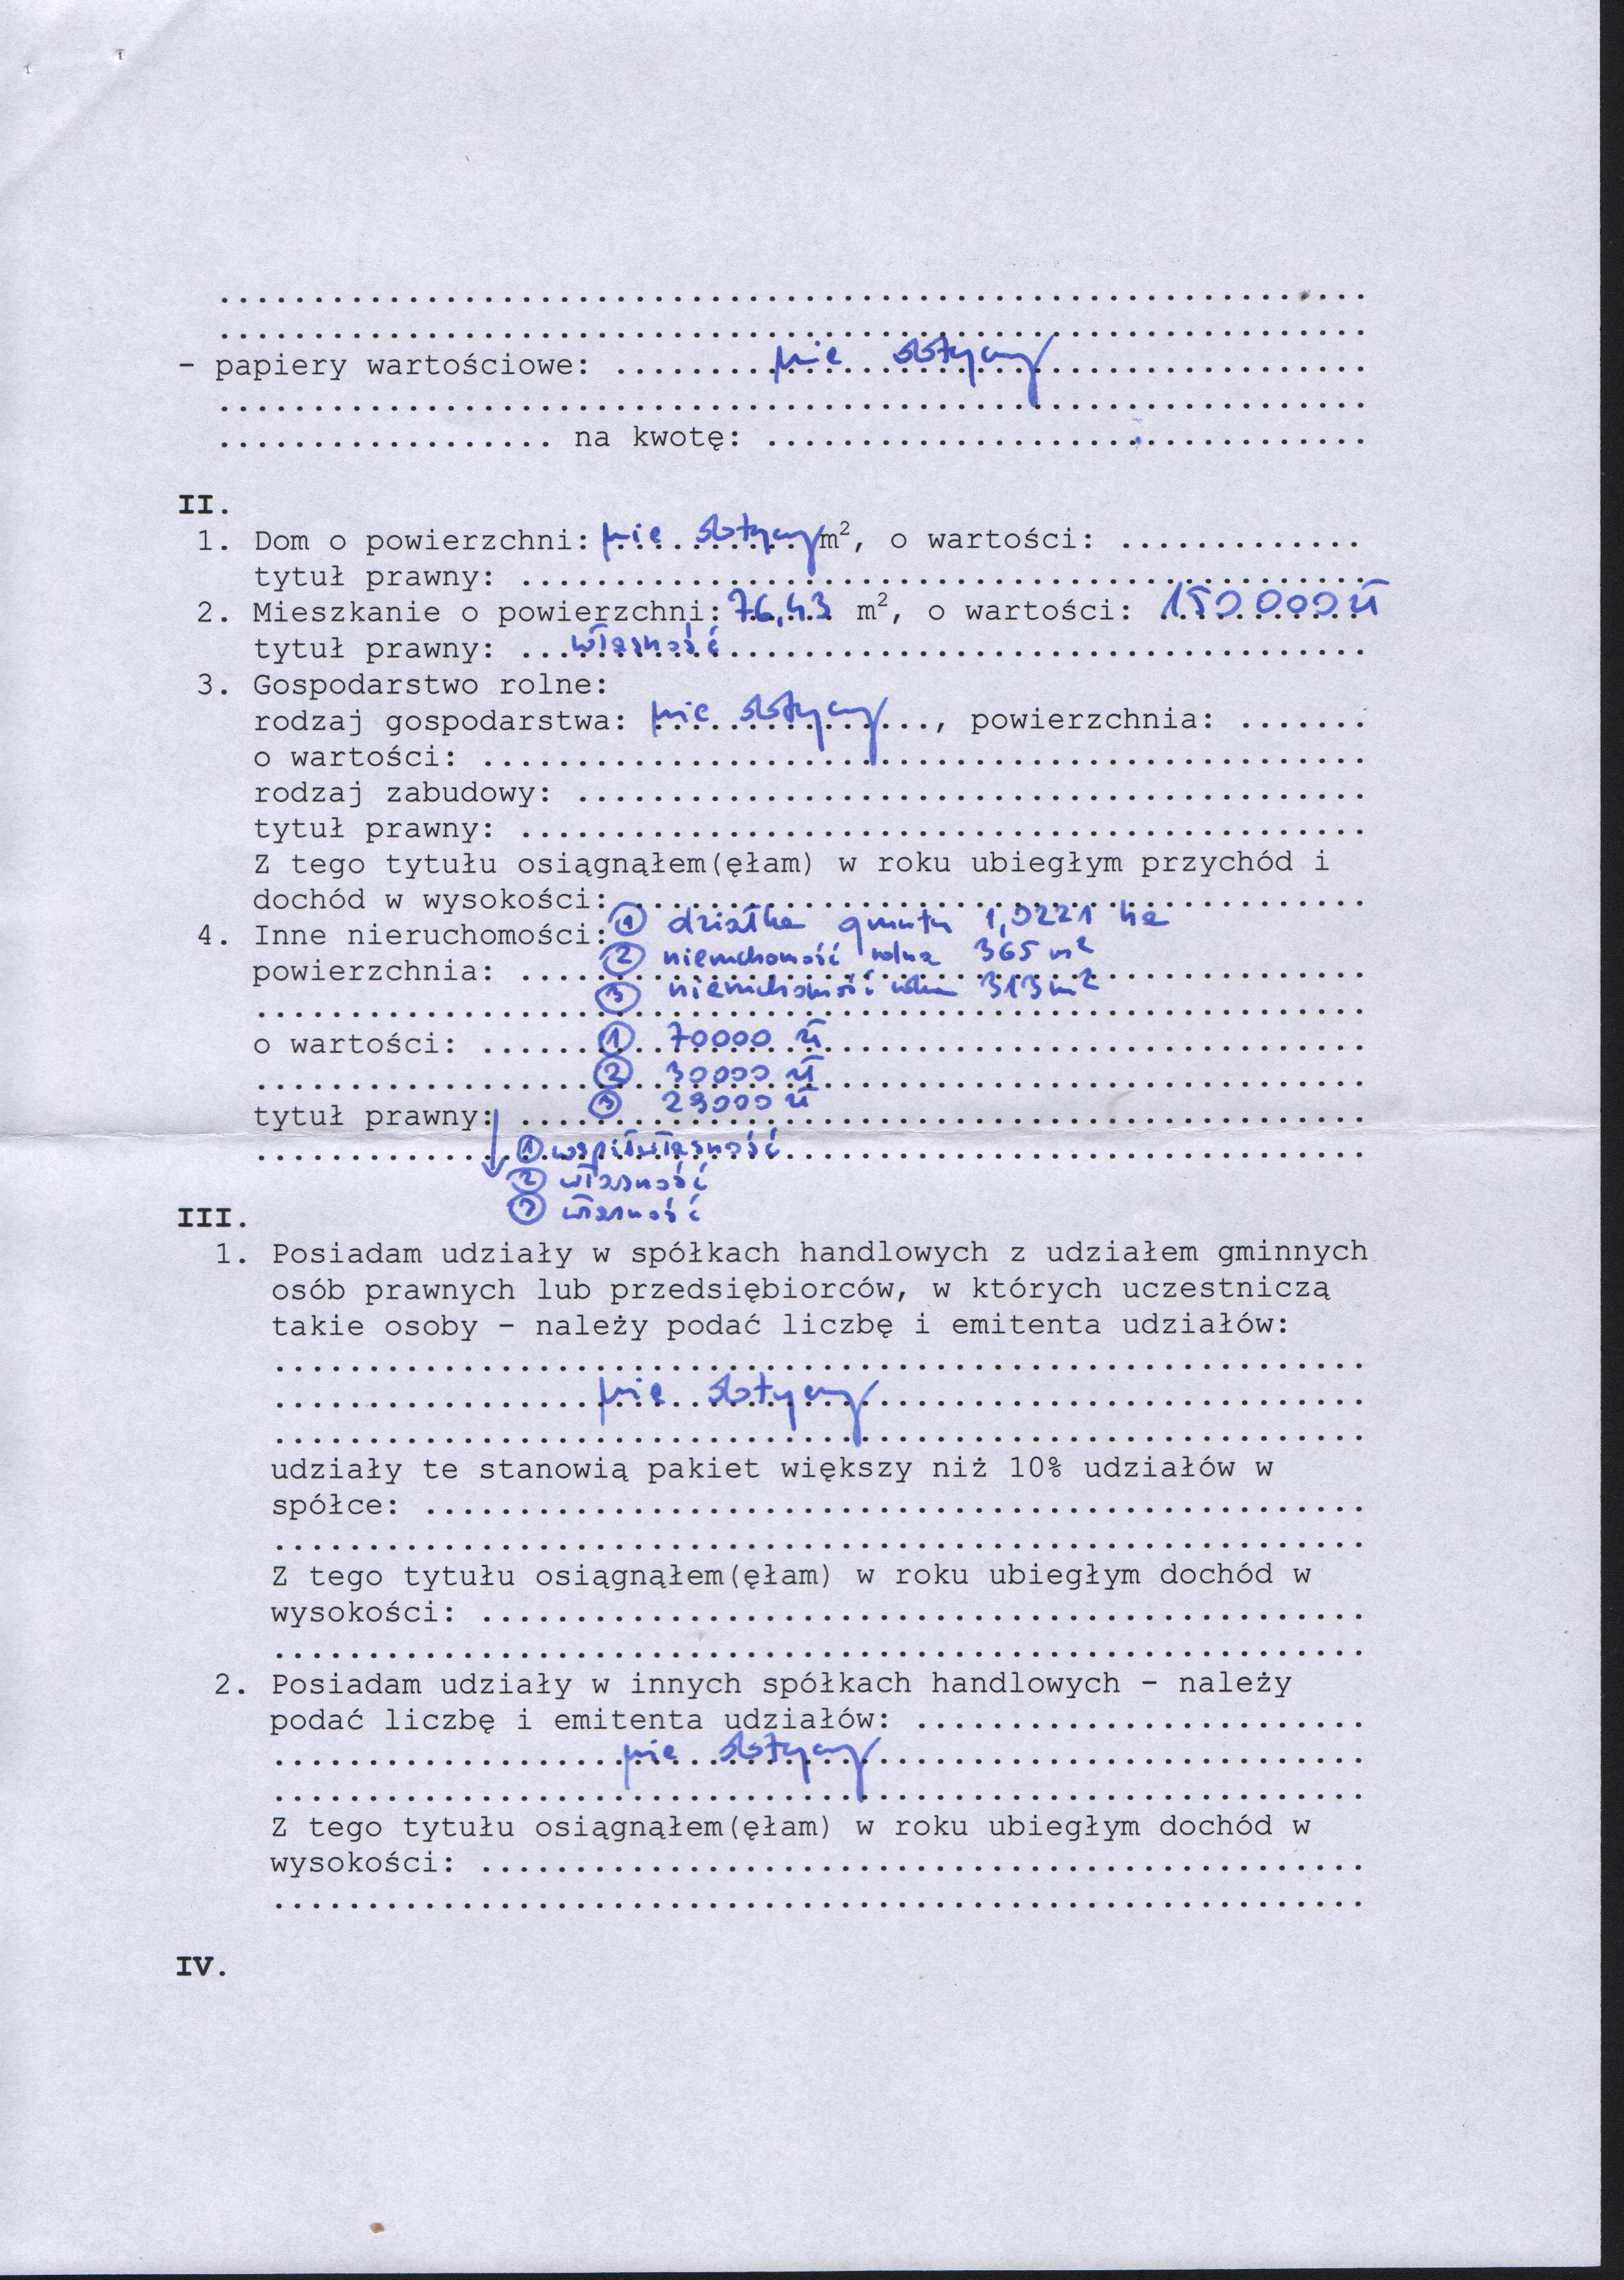 ......................................................................
......................................................................
- papiery wartościowe: ........nie dotyczy........................
......................................................................
.................. na kwotę: ................................
II.
1. Dom o powierzchni: nie dotyczy m², o wartości: .............
tytuł prawny: .............................................
2. Mieszkanie o powierzchni: 76,43 m², o wartości: 150 000 zł
tytuł prawny: ...własność..................................
3. Gospodarstwo rolne:
rodzaj gospodarstwa: nie dotyczy..., powierzchnia: .......
o wartości: ...............................................
rodzaj zabudowy: ..........................................
tytuł prawny: .............................................
Z tego tytułu osiągnąłem(ęłam) w roku ubiegłym przychód i
dochód w wysokości: .......................................
4. Inne nieruchomości: ① działka gruntu 1,0221 ha
powierzchnia: ... ② nieruchomość rolna 365 m²
③ nieruchomość rolna 313 m²
o wartości: ...... ① 70000 zł
② 30000 zł
③ 29000 zł
tytuł prawny: ↓
① współwłasność
② własność
③ własność
III.
1. Posiadam udziały w spółkach handlowych z udziałem gminnych
osób prawnych lub przedsiębiorców, w których uczestniczą
takie osoby - należy podać liczbę i emitenta udziałów:
..........................................................
.................nie dotyczy..........................
..........................................................
udziały te stanowią pakiet większy niż 10% udziałów w
spółce: ..................................................
..........................................................
Z tego tytułu osiągnąłem(ęłam) w roku ubiegłym dochód w
wysokości: ...............................................
..........................................................
2. Posiadam udziały w innych spółkach handlowych - należy
podać liczbę i emitenta udziałów: ........................
..................nie dotyczy..........................
..........................................................
Z tego tytułu osiągnąłem(ęłam) w roku ubiegłym dochód w
wysokości: ...............................................
..........................................................
IV.